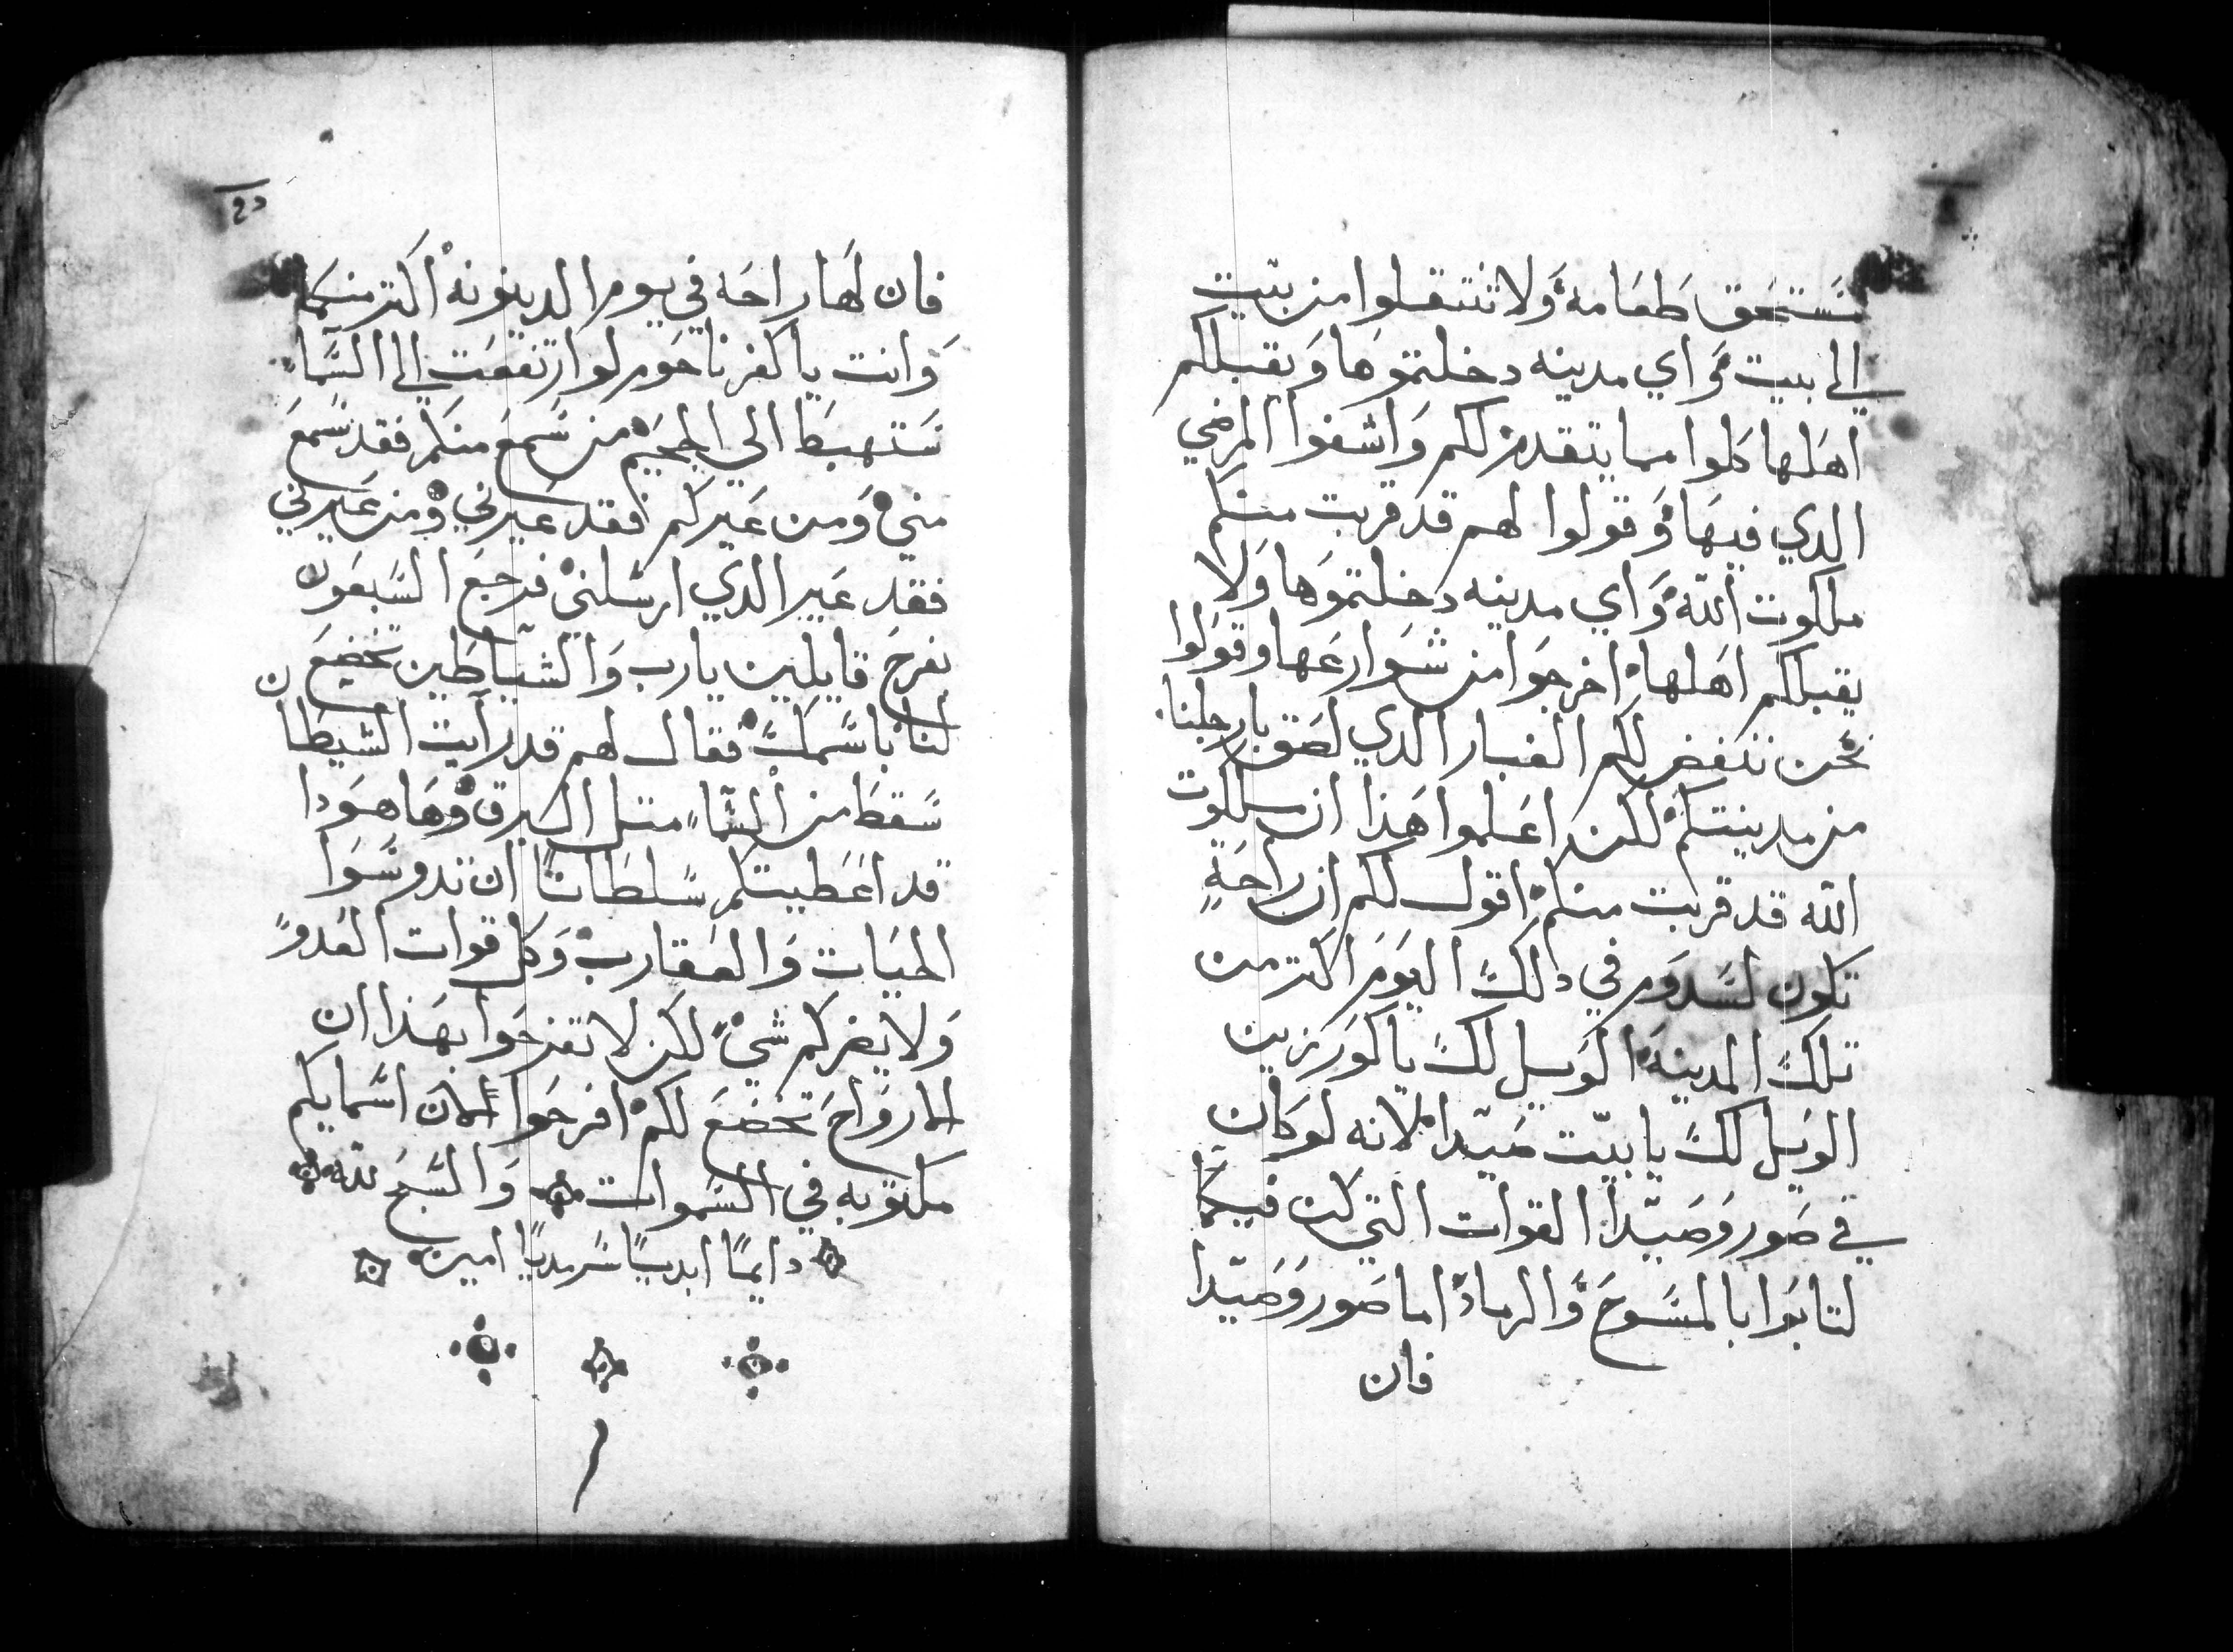 يستحق طعامه ولا تنتقلوا من بيت
الى بيت واي مدينه دخلتموها ويقبلكم
اهلها كلوا مما يتقدم لكم واشفوا المرضي
الدي فيها وقولوا لهم قد قربت منكم
ملكوت الله واي مدينه دخلتموها ولا
يقبلكم اهلها اخرجوا من شوارعها وقولوا
نحن ننفض لكم الغبار الدي لصق بارجلنا
من مدينتكم لكن اعلموا هذا ان ملكوت
الله قد قربت منكم اقول لكم ان راحةٍ
تكون لسدوم في دلك اليوم اكتر من
تلك المدينه الويل لك يا كورزين
الويل لك يا بيت صيدا لانه لو كان
في صور وصيدا القوات التي كن فيكما
لتابوا بالمسوح والرماد اما صور وصيدا
فان
فان لها راحه في يوم الدينونه اكتر منكما
وانت يا كفرناحوم لو ارتفعت الى السماء
ستهبط الي الجحيم من سمع منكم فقد سمع
مني ومن غيركم فقد غيرني ومن غيرني
فقد غير الدي ارسلني فرجع السبعون
بفرح قايلين يارب والشياطين تخضع
لنا باسمك فقال لهم قد رايت الشيطان
سقط من السماء متل البرق وها هودا
قد اعطيتكم سلطانًا ان تدوسوا
الحيات والعقارب وكل قوات العدو
ولا يضركم شي لكن لا تفرحوا بهذا ان
الارواح تخضع لكم افرحوا لان اسمايكم
مكتوبه في السموات والسبح لله
دايمًا ابديًا سرمديًا امين